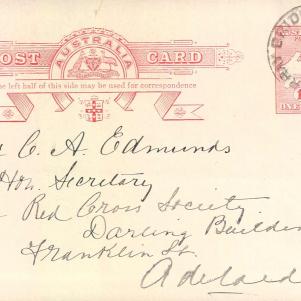 POST AUSTRALIA CARD
The left half of this side may be used for correspondence
C. A. Edmunds
Hon. Secretary
Red Cross Society
Darling Buildin
Franklin St.
Adelaid